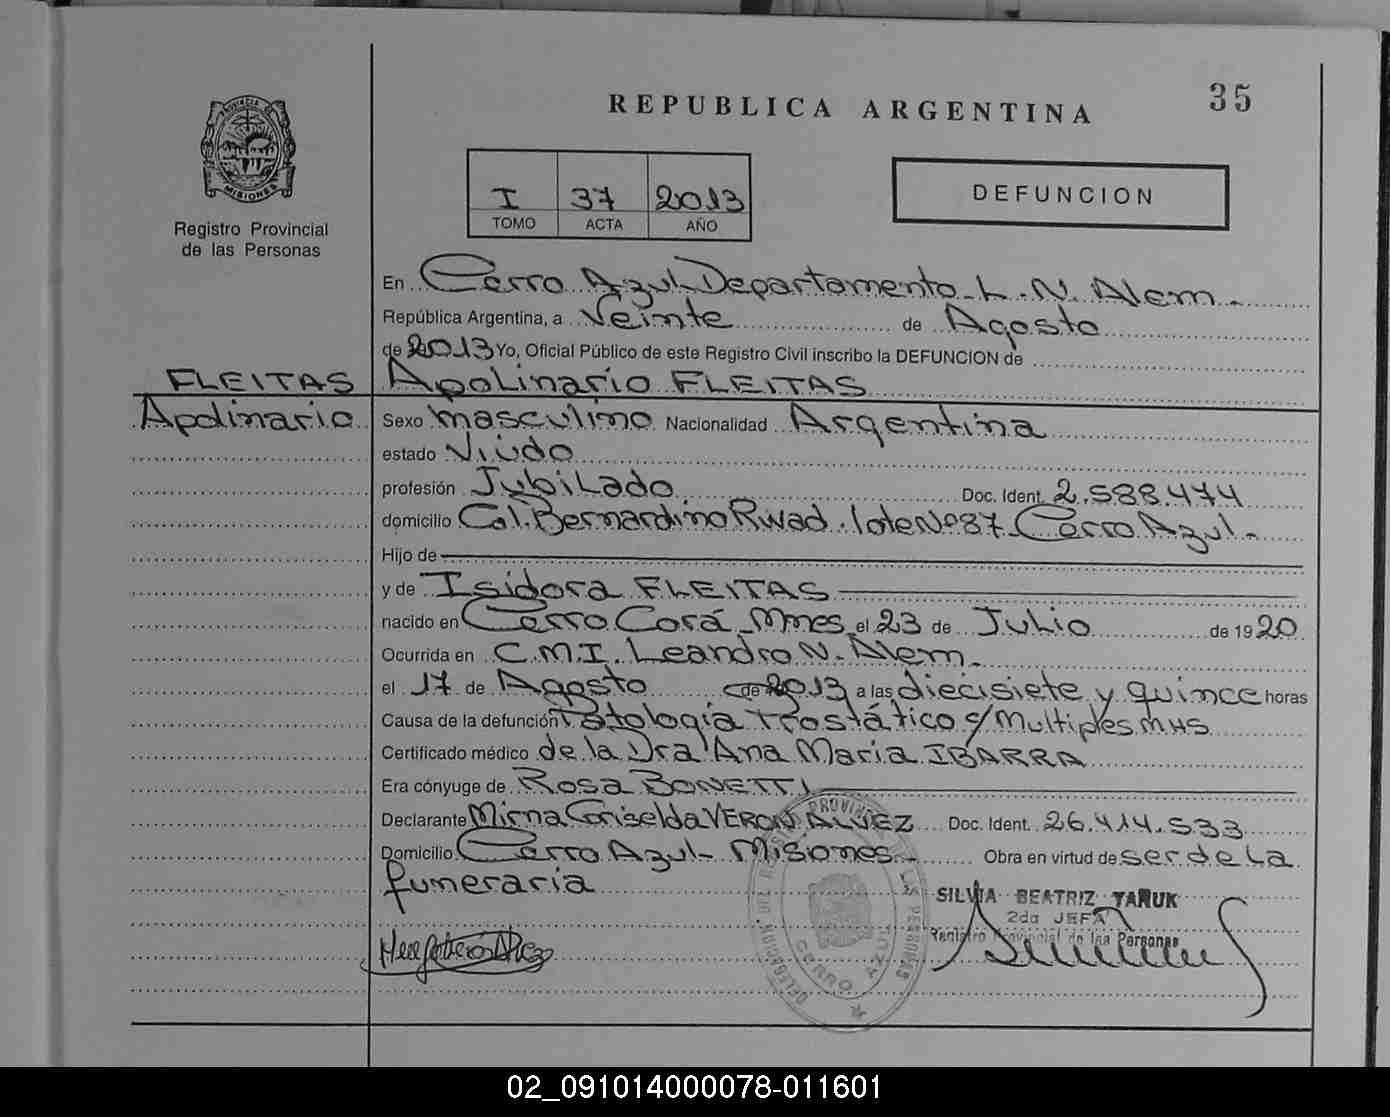 REPUBLICA ARGENTINA
35
PROVINCIA DE
MISIONES
Registro Provincial
de las Personas
I 37 2013
TOMO ACTA AÑO
DEFUNCION
En Cerro Azul Departamento L. N. Alem.
República Argentina, a Veinte de Agosto
de 2013 Yo, Oficial Público de este Registro Civil inscribo la DEFUNCION de
FLEITAS
Apolinario
Apolinario FLEITAS
Sexo masculino Nacionalidad Argentina
estado Viudo
profesión Jubilado Doc. Ident. 2.588.474
domicilio Col. Bernardino Rivad. lote Nº 87 Cerro Azul.
Hijo de
y de Isidora FLEITAS
nacido en Cerro Corá Mnes el 23 de Julio de 1920
Ocurrida en C.M.I. Leandro N. Alem.
el 17 de Agosto de 2013 a las diecisiete y quince horas
Causa de la defunción Patología Prostático c/ Multiples MHS
Certificado médico de la Dra Ana Maria IBARRA
Era cónyuge de Rosa BONETTI
Declarante Mirna Griselda VERON ALVEZ Doc. Ident. 26.414.533
Domicilio Cerro Azul - Misiones - Obra en virtud de ser de La
funeraria
SILVIA BEATRIZ TAÑUK
2da JEFA
Registro Provincial de las Personas
CERRO AZUL
02_091014000078-011601